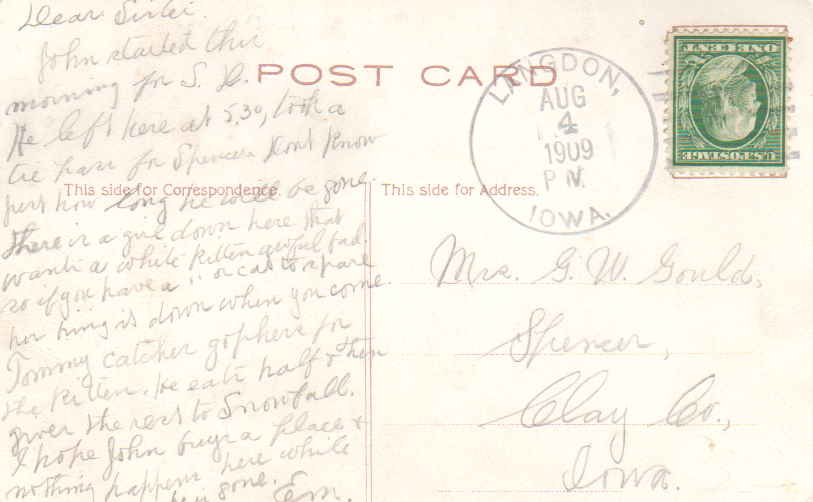 Dear Sister.
John started this
morning for S. D.
He left here at 5.30, took a
tie pass for Spencer. Dont know
just how long he will be gone.
There is a girl down here that
wants a white kitten awful bad.
so if you have a " or cat to spare
her bring it down when you come.
Tommy catches gophers for
the kitten. He eats half & then
gives the rest to Snowball.
I hope John buys a place &
nothing happens here while
he is gone. Em.
POST CARD
This side for Correspondence.
This side for Address.
LANGDON,
AUG
4
1909
P M.
IOWA.
U.S. POSTAGE
ONE CENT
Mrs. G. W. Gould,
Spencer,
Clay Co.,
Iowa.